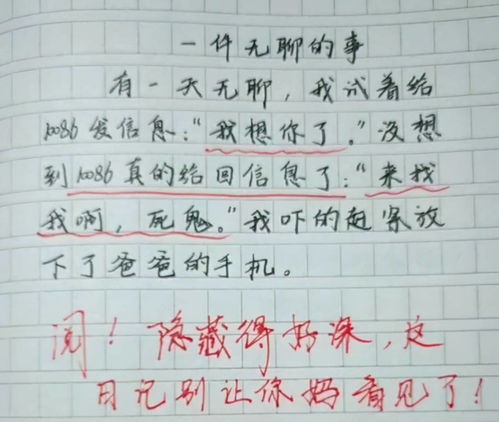 一件无聊的事
有一天无聊，我试着给
10086发信息：“我想你了。”没想
到10086真的给回信息了：“来找
我啊，死鬼。”我吓的赶紧放
下了爸爸的手机。
阅！隐藏得好深，这
日记别让你妈看见了！